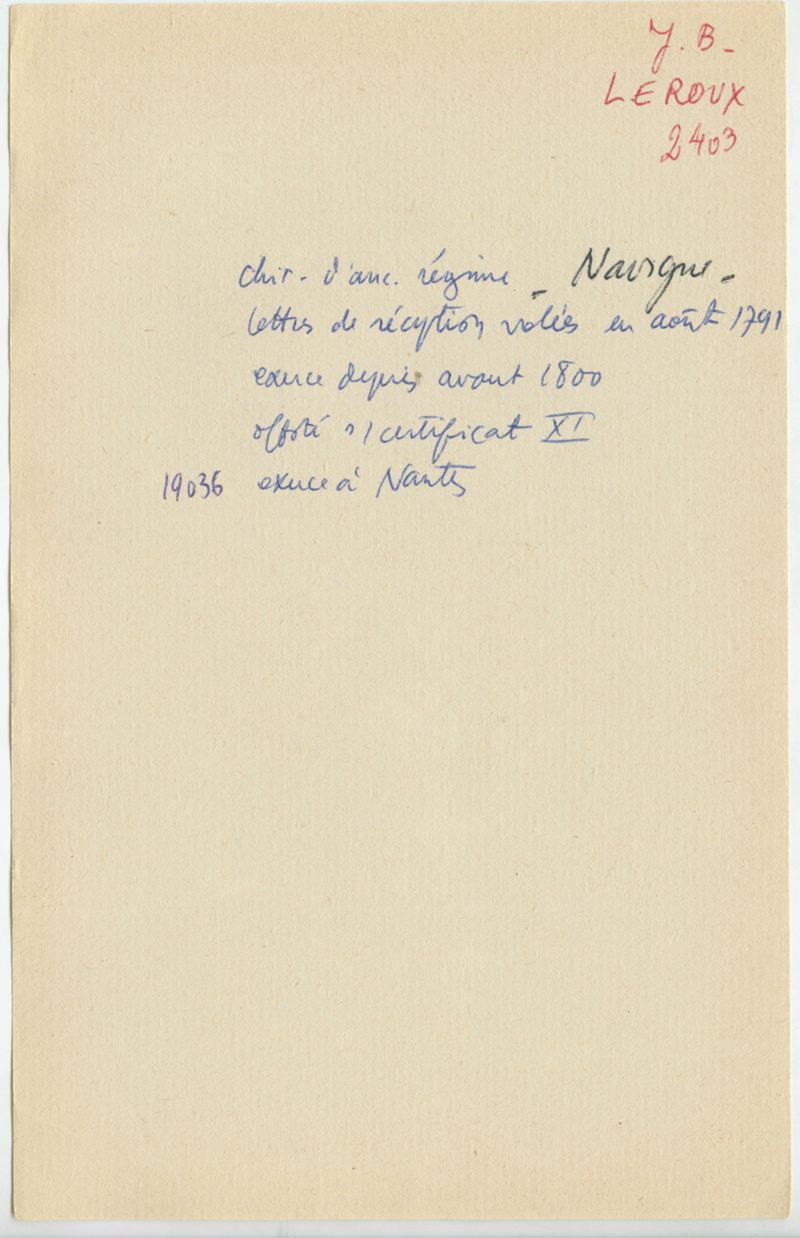 J. B.
LEROUX
2403
chir. d'anc. régime - Navigue -
lettres de réception volées en août 1791
exerce depuis avant 1800
s/ certificat XI
19036 exerce à Nantes